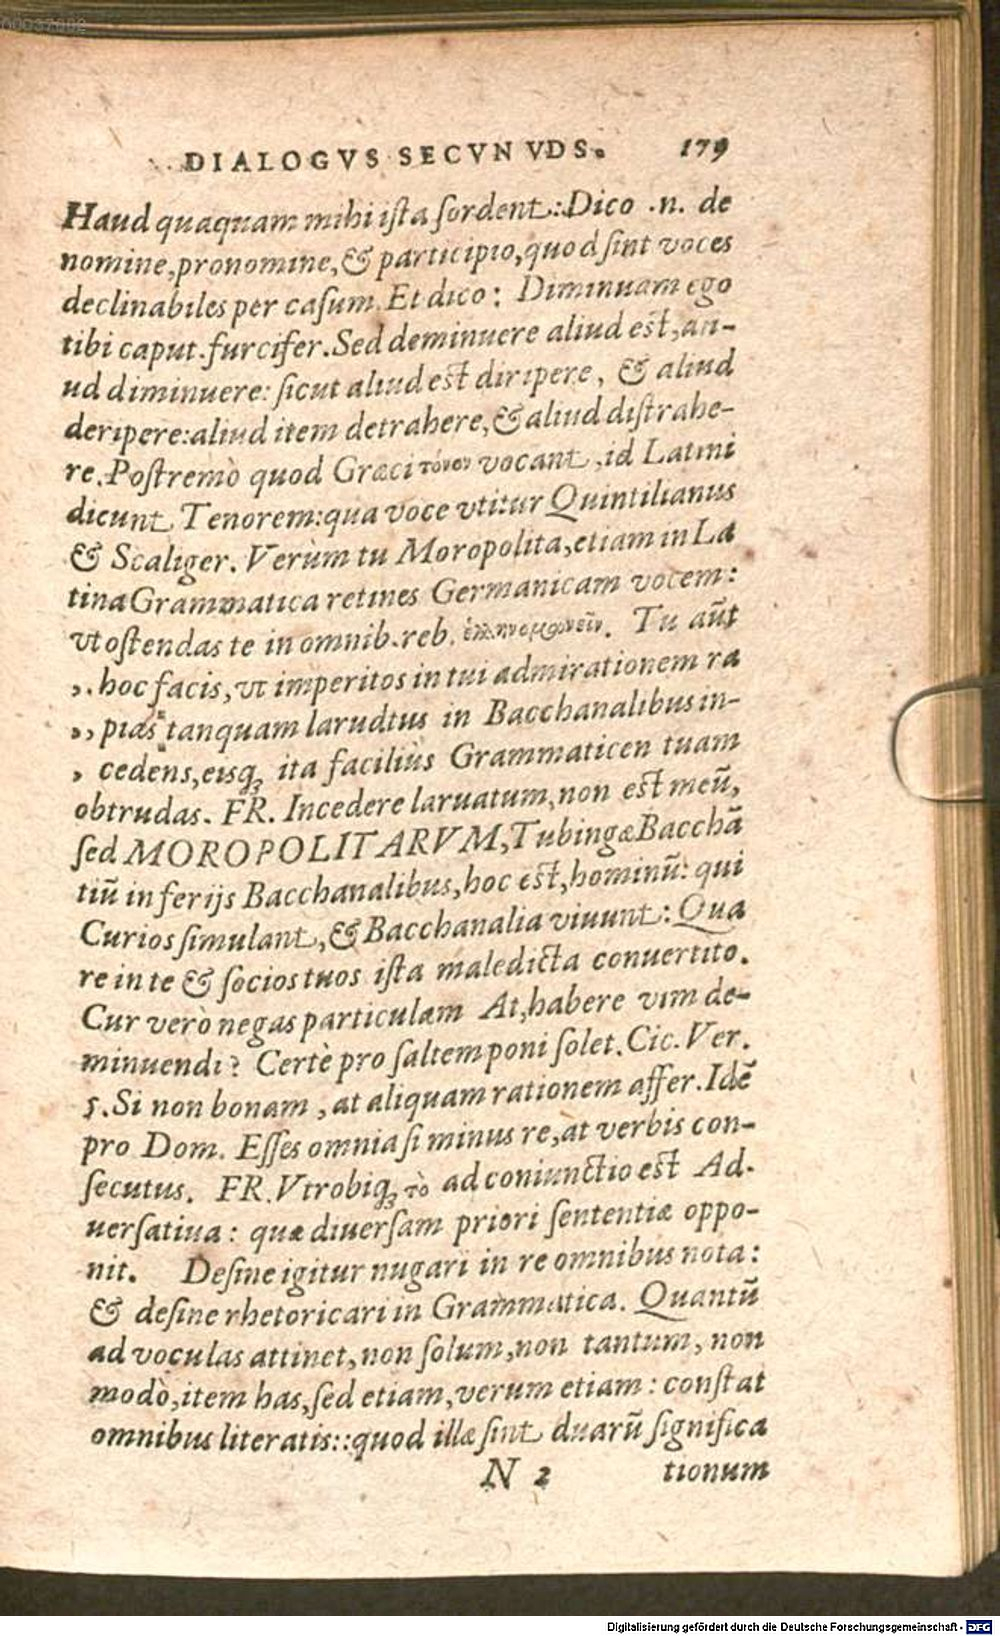 00037882
DIALOGVS SECVN VDS. 179
Haud quaquam mihi ista sordent: Dico .n. de
nomine, pronomine, & participio, quod sint voces
declinabiles per casum. Et dico: Diminuam ego
tibi caput furcifer. Sed deminuere aliud est, ali-
ud diminuere: sicut aliud est diripere, & aliud
deripere: aliud item detrahere, & aliud distrahe-
re. Postremò quod Græci τόνον vocant, id Latini
dicunt Tenorem: qua voce vtitur Quintilianus
& Scaliger. Verùm tu Moropolita, etiam in La
tina Grammatica retines Germanicam vocem:
vt ostendas te in omnib. reb. . Tu aūt
,, hoc facis, vt imperitos in tui admirationem ra
,, pias tanquam larudtus in Bacchanalibus in-
, cedens, eisq; ita facilius Grammaticen tuam
obtrudas. FR. Incedere laruatum, non est meū,
sed MOROPOLITARVM, Tubingæ Bacchā
tiū in ferijs Bacchanalibus, hoc est, hominū: qui
Curios simulant, & Bacchanalia viuunt: Qua
re in te & socios tuos ista maledicta conuertito.
Cur verò negas particulam At, habere vim de-
minuendi? Certè pro saltem poni solet. Cic. Ver.
5. Si non bonam, at aliquam rationem affer. Idē
pro Dom. Esses omnia si minus re, at verbis con-
secutus. FR. Vtrobiq; τὸ ad coniunctio est Ad-
uersatiua: quæ diuersam priori sententiæ oppo-
nit. Desine igitur nugari in re omnibus nota:
& desine rhetoricari in Grammatica. Quantū
ad voculas attinet, non solum, non tantum, non
modò, item has, sed etiam, verum etiam: constat
omnibus literatis:: quod illæ sint duarū significa
N 2 tionum
Digitalisierung gefördert durch die Deutsche Forschungsgemeinschaft - DFG